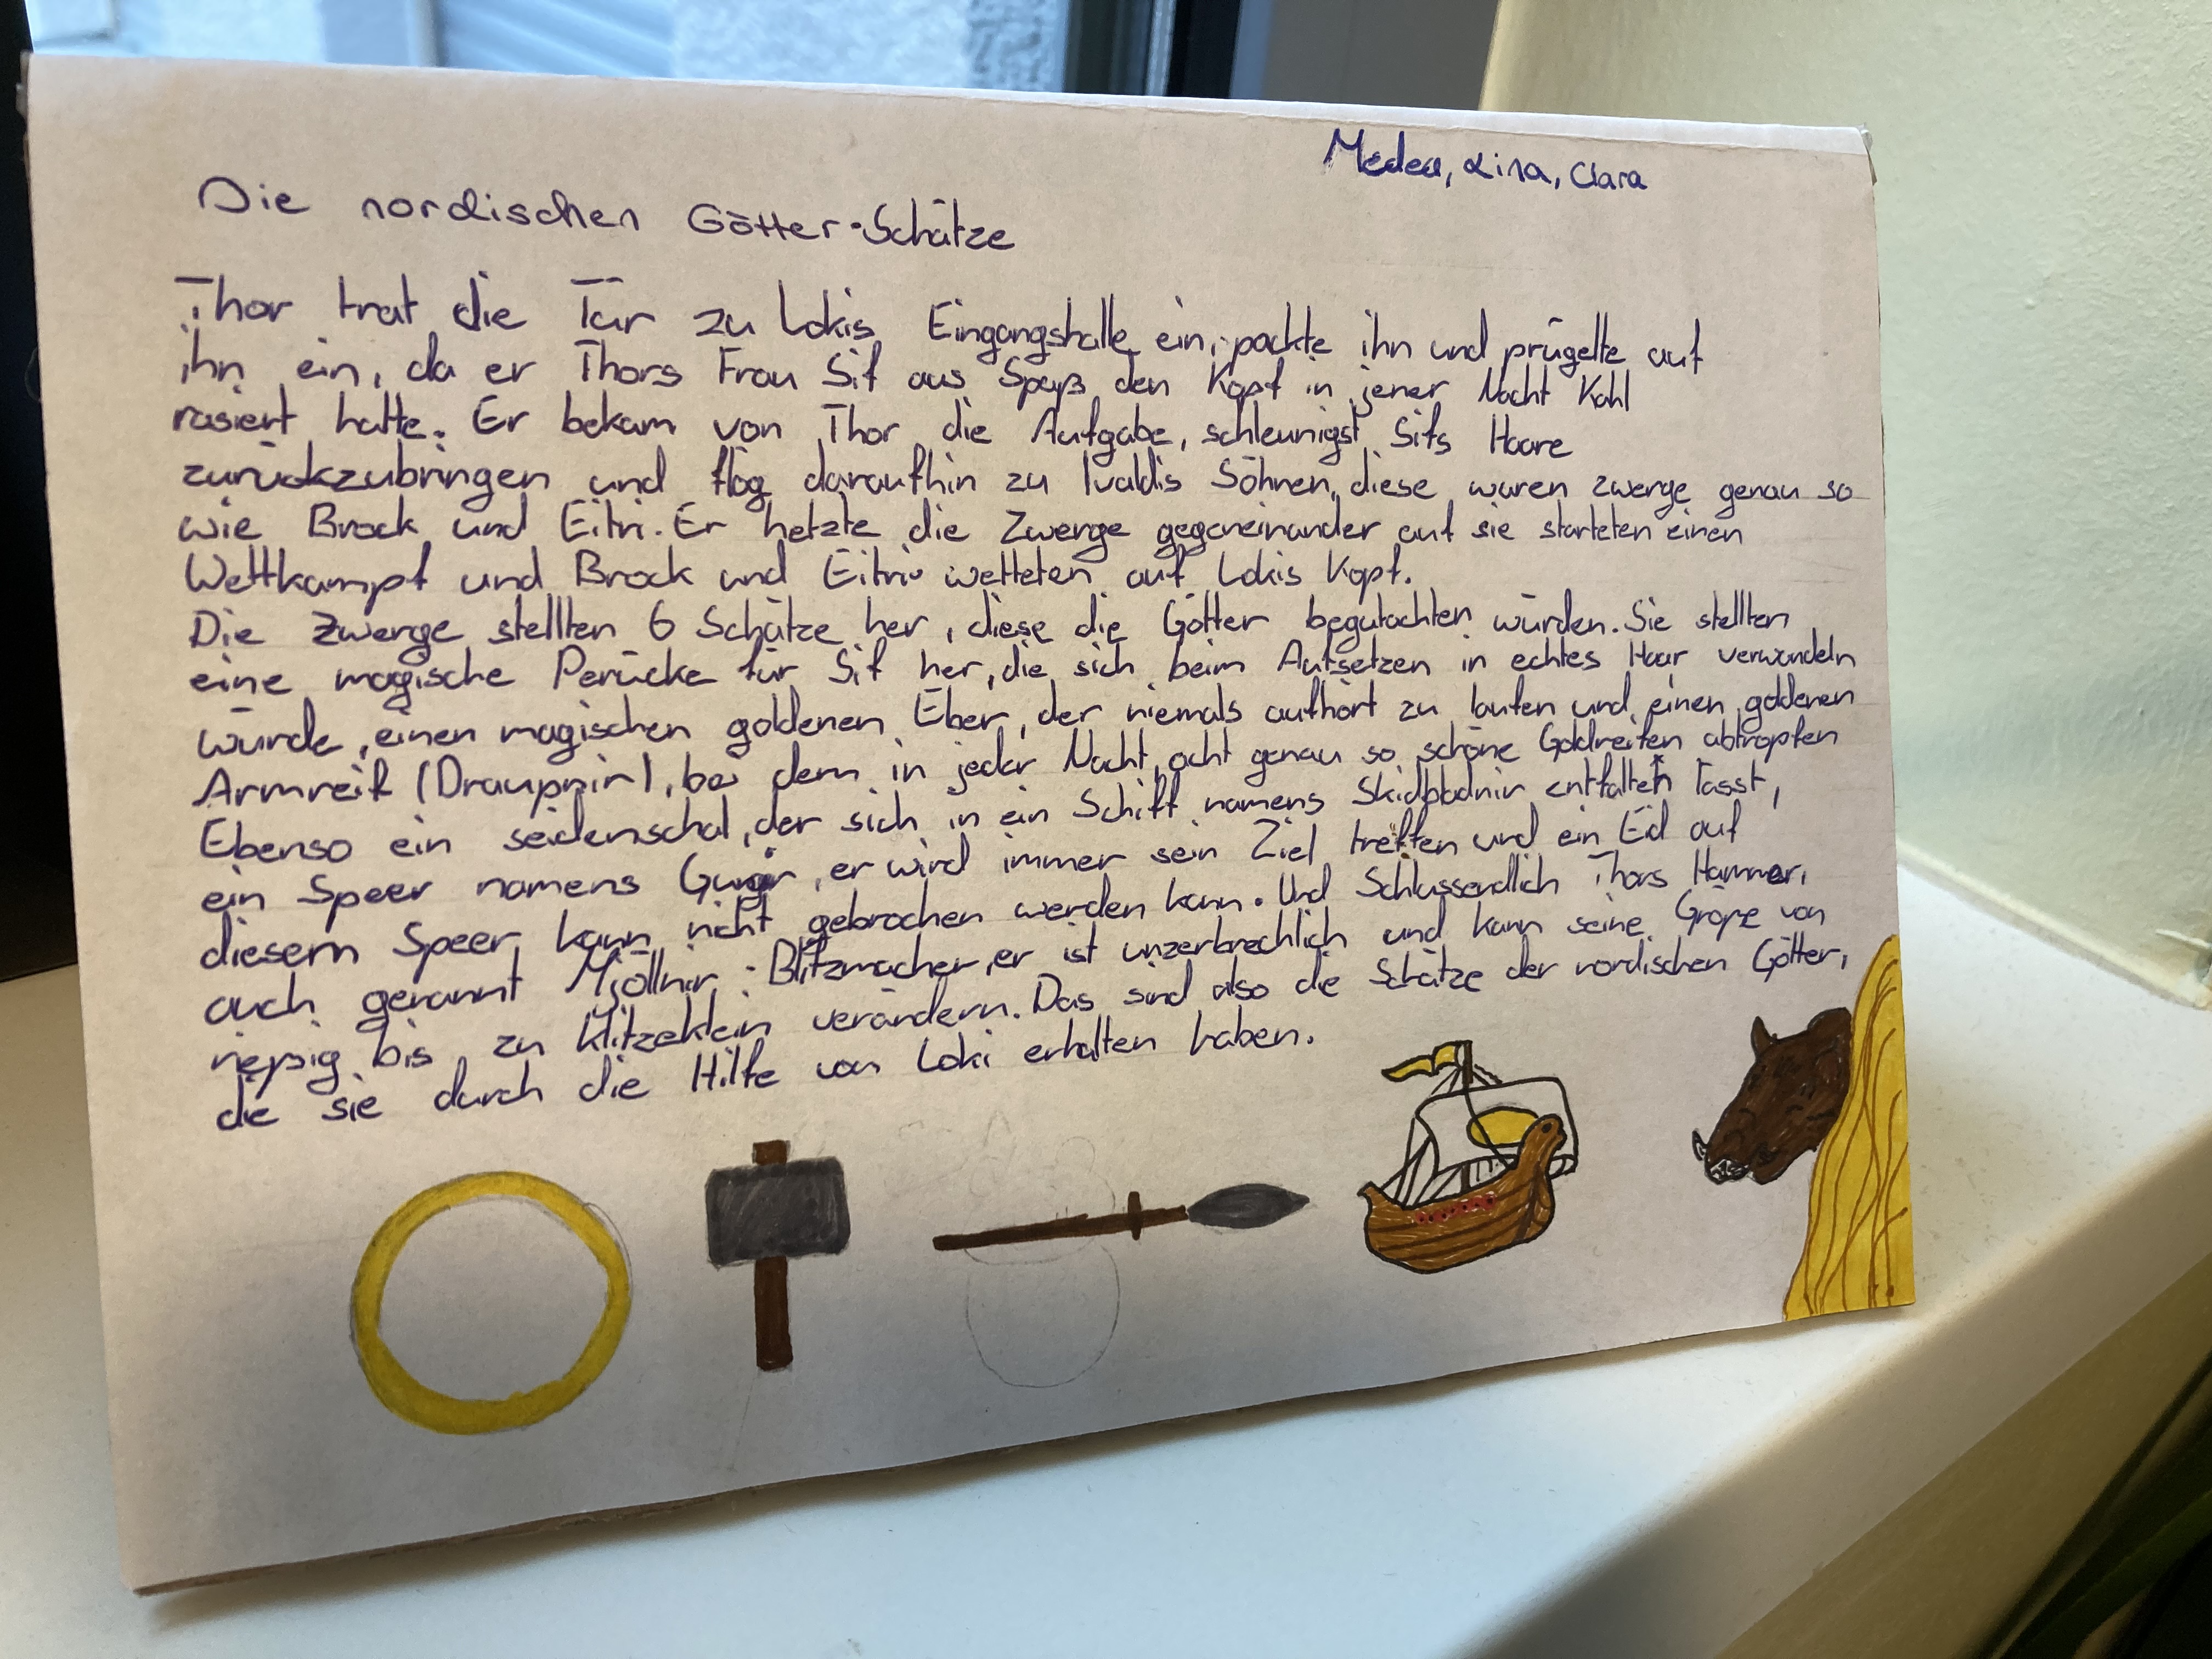 Medea, Lina, Clara
Die nordischen Götter-Schätze
Thor trat die Tür zu Lokis Eingangshalle ein, packte ihn und prügelte auf
ihn ein, da er Thors Frau Sif aus Spaß den Kopf in jener Nacht Kahl
rasiert hatte. Er bekam von Thor die Aufgabe, schleunigst Sifs Haare
zurückzubringen und flog daraufhin zu Ivaldis Söhnen, diese waren zwerge genau so
wie Brock und Eitri. Er hetzte die Zwerge gegeneinander auf sie starteten einen
Wettkampf und Brock und Eitri wetteten auf Lokis Kopf.
Die Zwerge stellten 6 Schätze her, diese die Götter begutachten würden. Sie stellten
eine magische Perücke für Sif her, die sich beim Aufsetzen in echtes Haar verwandeln
würde, einen magischen goldenen Eber, der niemals aufhört zu laufen und einen goldenen
Armreif (Draupnir), bei dem in jeder Nacht acht genau so schöne Goldreifen abtropfen
Ebenso ein seidenschal, der sich in ein Schiff namens Skidbladnir entfalten lässt,
ein Speer namens er wird immer sein Ziel treffen und ein Eid auf
diesem Speer kann nicht gebrochen werden kann. Und Schlussendlich Thors Hammer,
auch genannt Mjöllnir: Blitzmacher, er ist unzerbrechlich und kann seine Größe von
rießig bis zu klitzeklein verändern. Das sind also die Schätze der nordischen Götter,
die sie durch die Hilfe von Loki erhalten haben.